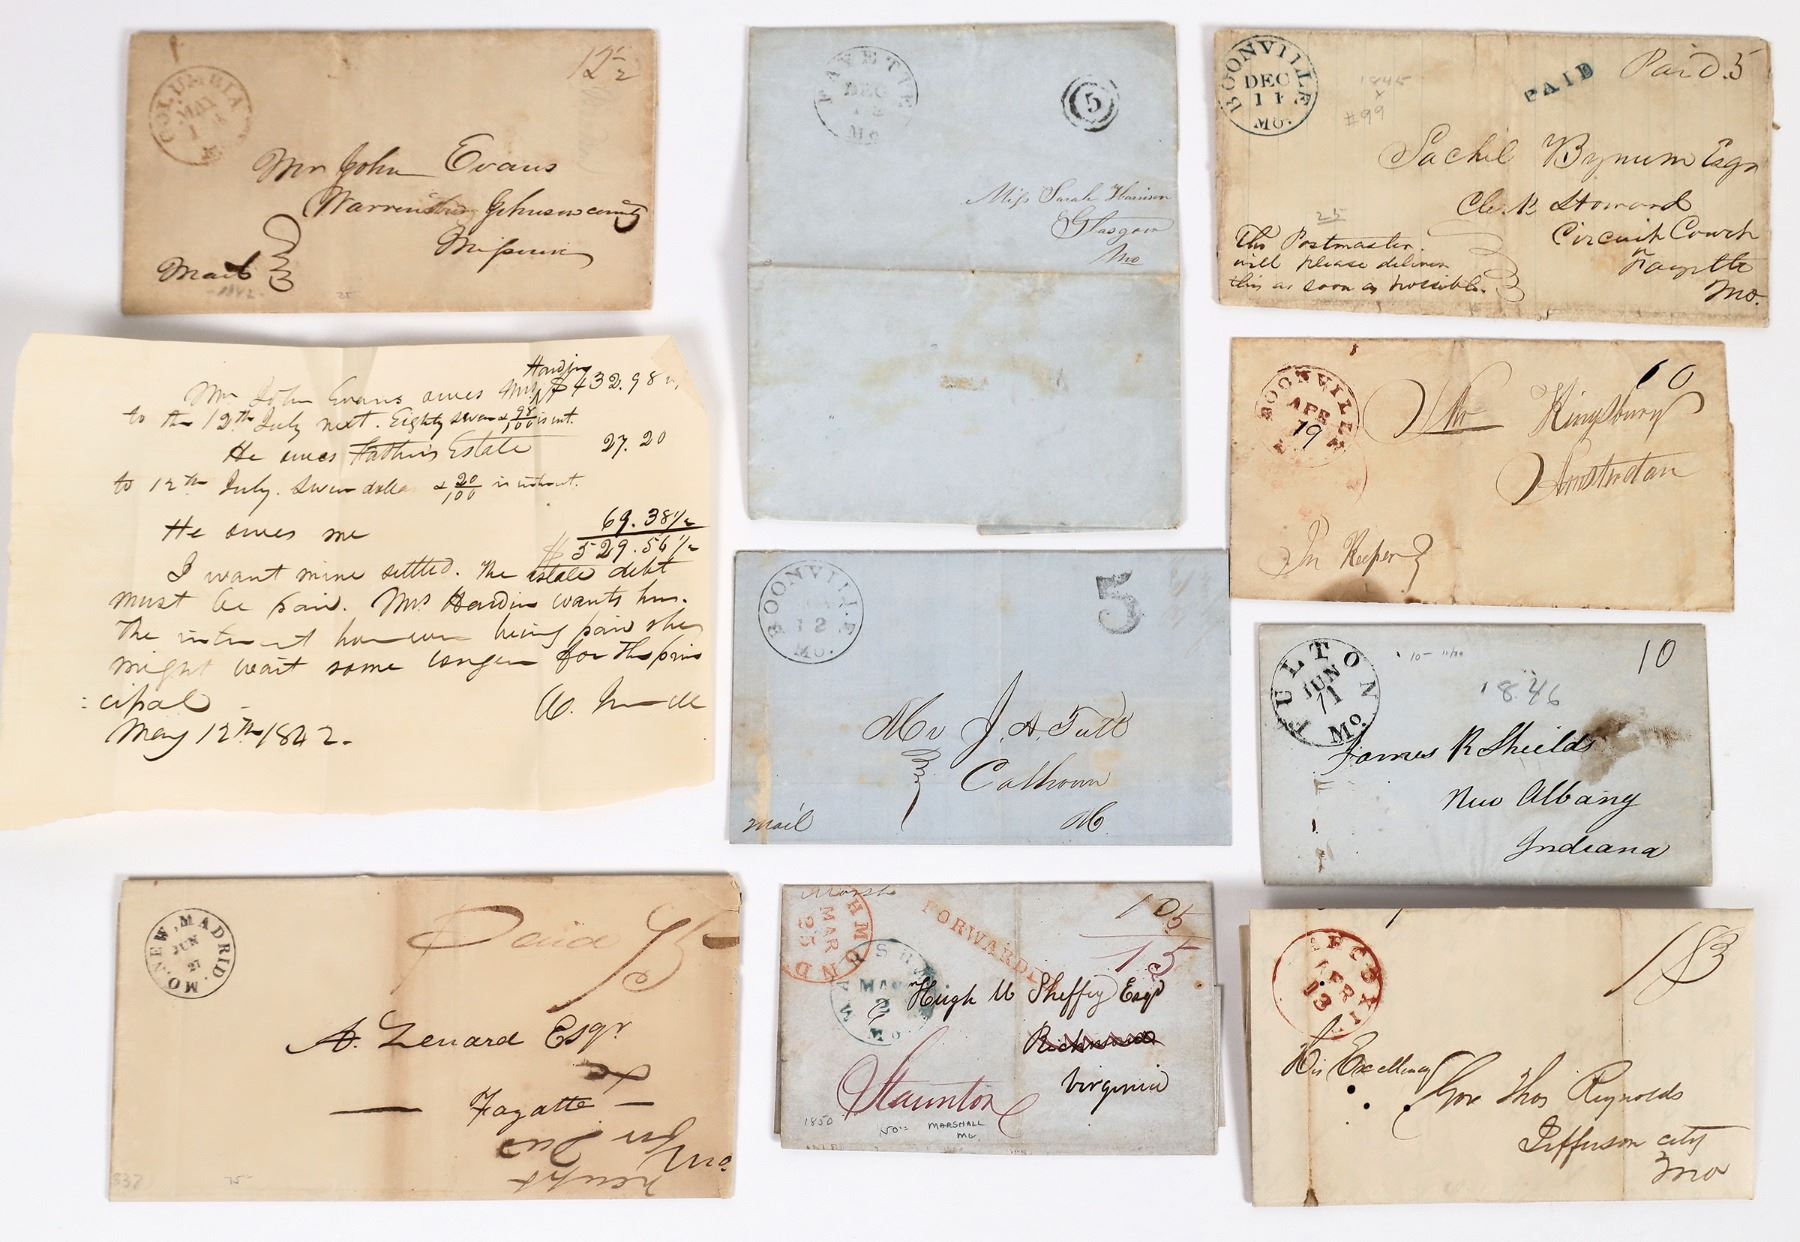 COLUMBIA
MAY
Mo
12 1/2
Mr John Evans
Warrensburg Johnson county
Missouri
Mail
-1842-
25
Mr John Evans owes Mrs Hardin $432.98
to the 12th July next. Eighty seven & 98/100 is int.
He owes Fathers Estate 27.20
to 12th July. Seven dollars & 20/100 is interest.
He owes me 69.38 1/2
$529.56 1/2
I want mine settled. The estate debt
must be paid. Mrs Hardin wants hers.
The interest however being paid she
might wait some longer for the prin
cipal
May 12th 1842.
NEW MADRID
MO.
JUN
27
Paid 75
A. Lenard Esqr
Fayatte
Mo
75
FAYETTE
DEC
Mo
5
Miss Sarah Harison
Glasgow
Mo
BOONVILLE
12
MO.
5
Mr J. A. Tutt
Calhoun
M
mail
RICHMOND
MAR
25
FORWARDED
10 5
15
MAR
Mo
Hugh W Sheffey Esqr
Richmond
Virginia
Staunton
1850
MARSHALL
MO.
BOONVILLE
DEC
11
MO.
1845
x
#99
PAID
Paid 5
Sachil Bynum Esqr
Clerk Howard
Circuit Court
Fayette
Mo.
25
The Postmaster
will please deliver
this as soon as possible.
BOONVILLE
APR
19
10
Mr Kingsbury
Inn Keeper
FULTON
JUN
11
Mo.
10
1846
James R Shields
New Albany
Indiana
FEB
13
18 3
His Excellency
Gov Thos Reynolds
Jefferson city
Mo